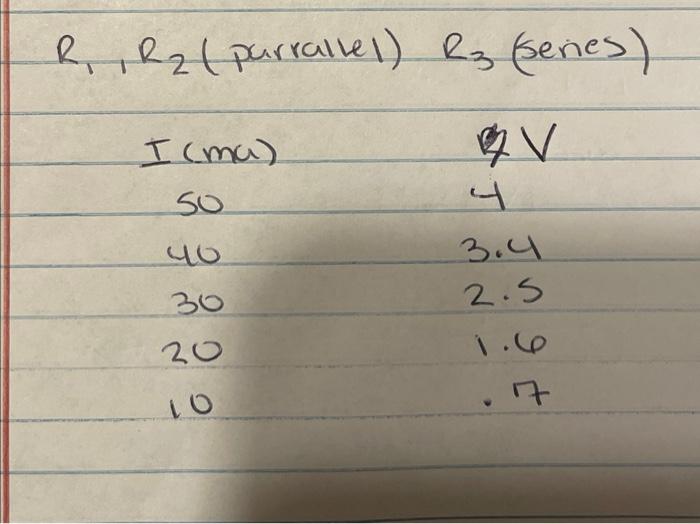 R1, R2 (parrallel) R3 (series)
I (ma) V
50 4
40 3.4
30 2.5
20 1.6
10 .7